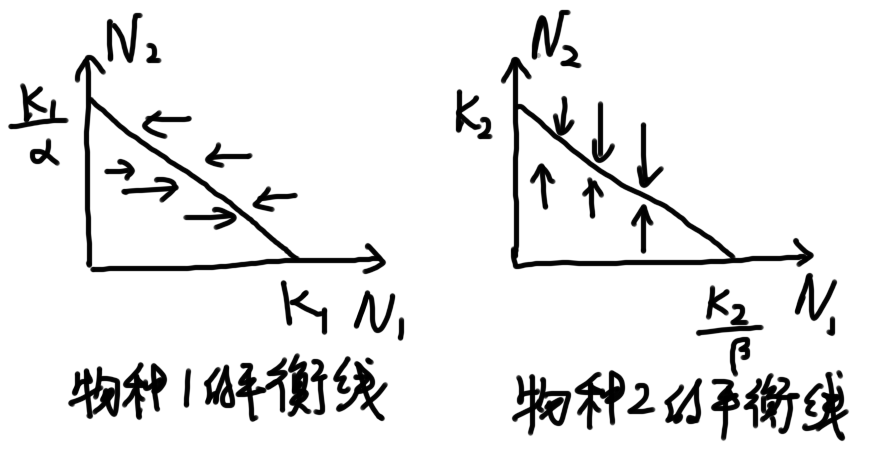 N₂
K₁/α
K₁ N₁
物种1的平衡线
N₂
K₂
K₂/β N₁
物种2的平衡线